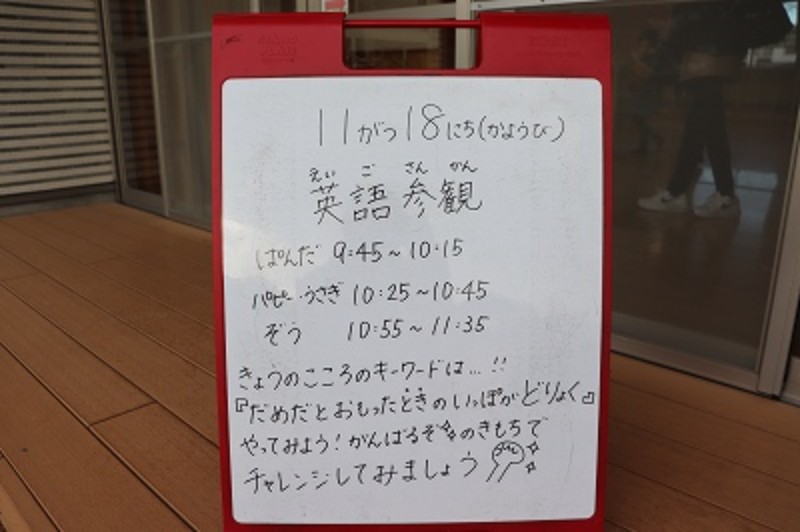 11がつ18にち(かようび)
えい ご さん かん
英語参観
ぱんだ 9:45~10:15
パピー・うさぎ 10:25~10:45
ぞう 10:55~11:35
きょうのこころのキーワードは…!!
『だめだとおもったときのいっぽがどりょく』
やってみよう!がんばるぞ✨のきもちで
チャレンジしてみましょう